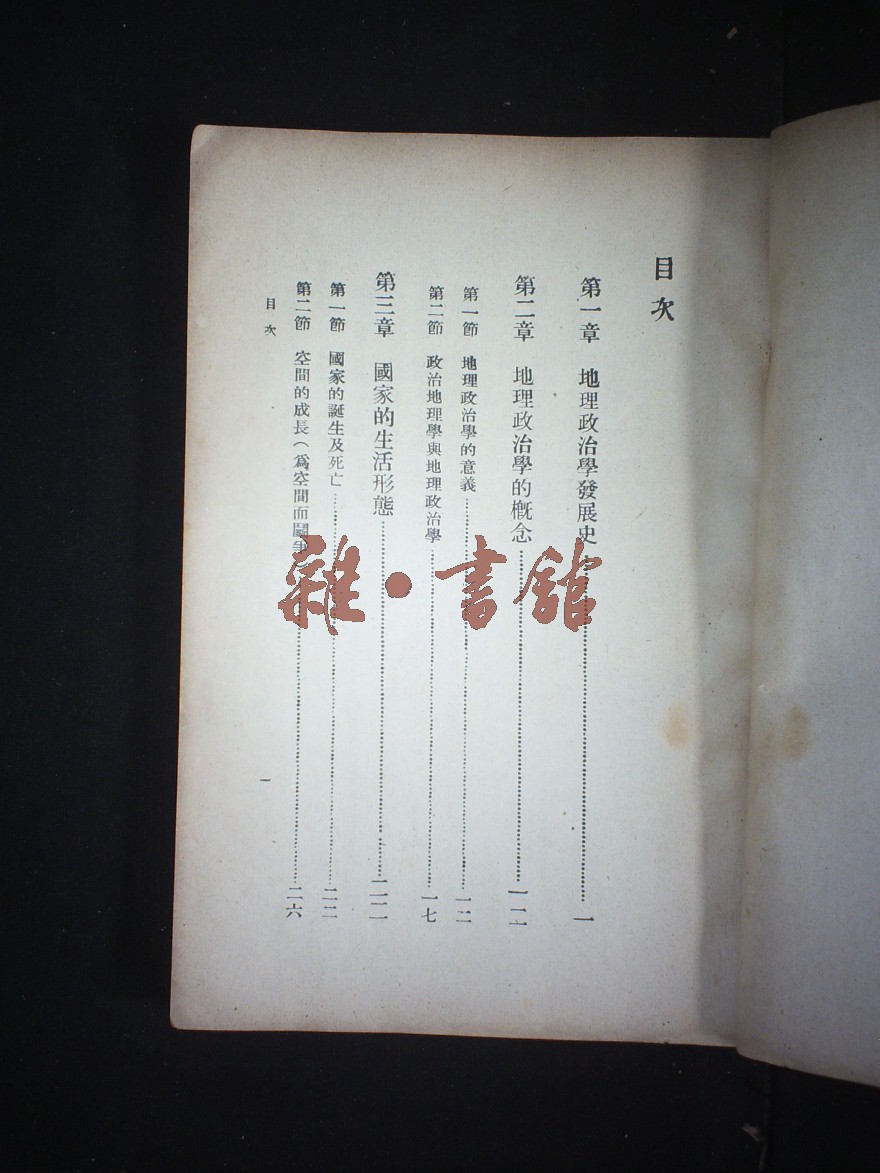 目次
第一章 地理政治學發展史……一
第二章 地理政治學的概念……一二
第一節 地理政治學的意義……一二
第二節 政治地理學與地理政治學……一七
第三章 國家的生活形態……二二
第一節 國家的誕生及死亡……二二
第二節 空間的成長（爲空間而鬪爭……二六
目次
一
雜·書館